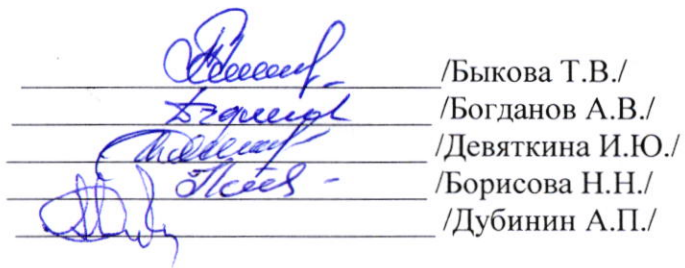 /Быкова Т.В./
/Богданов А.В./
/Девяткина И.Ю./
/Борисова Н.Н./
/Дубинин А.П./